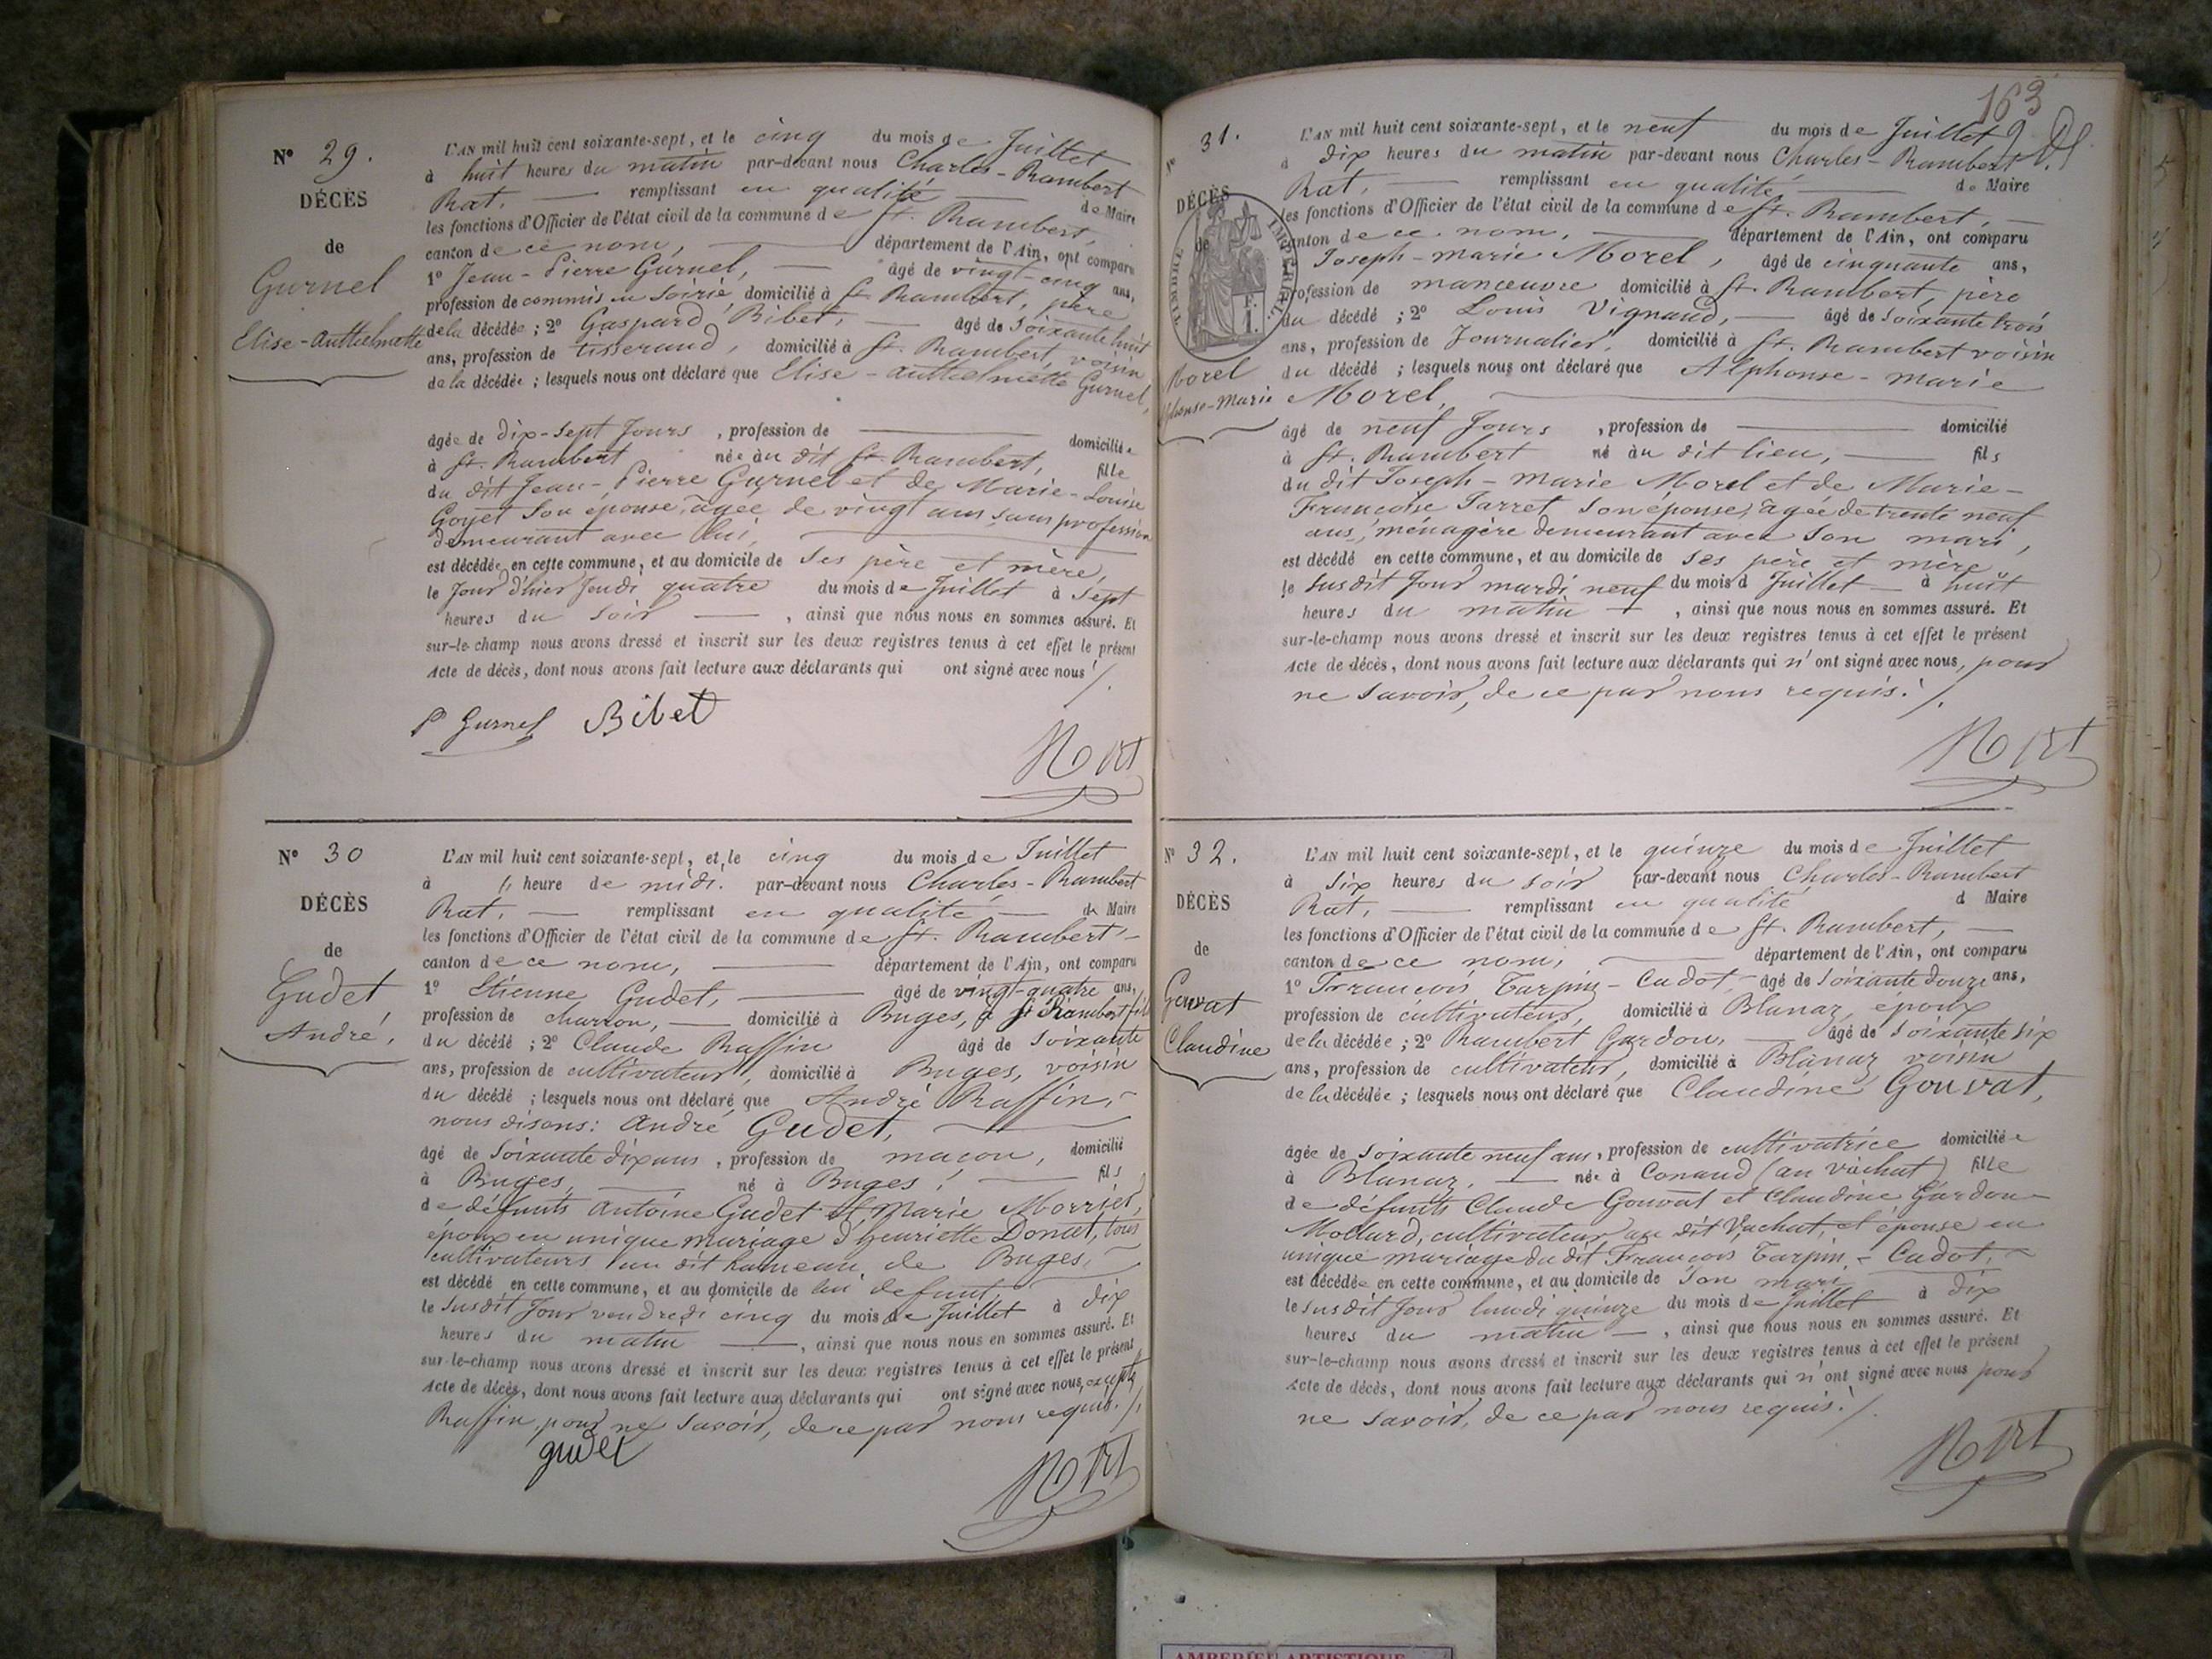 Nº 29.
DÉCÈS
de
Gurnel
Elise-Anthelmette
L'AN mil huit cent soixante-sept, et le cinq du mois de Juillet
à huit heures du matin par-devant nous Charles-Rambert
Rat, remplissant en qualité de Maire
les fonctions d'Officier de l'état civil de la commune de St. Rambert,
canton de ce nom, département de l'Ain, ont comparu
1º Jean-Pierre Gurnel, âgé de vingt-cinq ans,
profession de commis en soirie, domicilié à St. Rambert, père
de la décédée ; 2º Gaspard Bibet, âgé de soixante huit
ans, profession de tisserand, domicilié à St. Rambert, voisin
de la décédée ; lesquels nous ont déclaré que Elise-Anthelmette Gurnel,
âgée de dix-sept Jours , profession de domiciliée
à St. Rambert née au dit St. Rambert, fille
du dit Jean-Pierre Gurnel et de Marie-Louise
Goyet son épouse, agée de vingt ans sans profession
demeurant avec lui,
est décédée en cette commune, et au domicile de ses père et mère,
le Jour d'hier Jeudi quatre du mois de Juillet à sept
heures du soir , ainsi que nous nous en sommes assuré. Et
sur-le-champ nous avons dressé et inscrit sur les deux registres tenus à cet effet le présent
Acte de décès, dont nous avons fait lecture aux déclarants qui ont signé avec nous ./.
P Gurnel Bibet
Rat
Nº 30
DÉCÈS
de
Gudet
André,
L'AN mil huit cent soixante-sept, et le cinq du mois de Juillet
à heure de midi. par-devant nous Charles-Rambert
Rat, remplissant en qualité de Maire
les fonctions d'Officier de l'état civil de la commune de St. Rambert,
canton de ce nom, département de l'Ain, ont comparu
1º Etienne Gudet, âgé de vingt-quatre ans,
profession de charron, domicilié à Buges, à St Rambert fils
du décédé ; 2º Claude Raffin âgé de soixante
ans, profession de cultivateur, domicilié à Buges, voisin
du décédé ; lesquels nous ont déclaré que André Raffin,
nous disons: André Gudet,
âgé de soixante dix ans , profession de maçon, domicilié
à Buges, né à Buges, fils
de défunts Antoine Gudet et Marie Morrier,
époux en unique mariage d'henriette Donat, tous
cultivateurs au dit hameau de Buges,
est décédé en cette commune, et au domicile de lui défunt,
le susdit Jour vendredi cinq du mois de Juillet à dix
heures du matin , ainsi que nous nous en sommes assuré. Et
sur-le-champ nous avons dressé et inscrit sur les deux registres tenus à cet effet le présent
Acte de décès, dont nous avons fait lecture aux déclarants qui ont signé avec nous, excepté
Raffin, pour ne savoir, de ce par nous requis. ./.
gudet
Rat
163
Nº 31.
DÉCÈS
de
TIMBRE IMPÉRIAL
Morel
Alphonse-Marie
L'AN mil huit cent soixante-sept, et le neuf du mois de Juillet
à dix heures du matin par-devant nous Charles-Rambert
Rat, remplissant en qualité de Maire
les fonctions d'Officier de l'état civil de la commune de St. Rambert,
canton de ce nom, département de l'Ain, ont comparu
Joseph-marie Morel, âgé de cinquante ans,
profession de manœuvre domicilié à St. Rambert, père
du décédé ; 2º Louis Vignaud, âgé de soixante trois
ans, profession de Journalier, domicilié à St. Rambert voisin
du décédé ; lesquels nous ont déclaré que Alphonse-marie
Morel,
âgé de neuf Jours , profession de domicilié
à St. Rambert né au dit lieu, fils
du dit Joseph-marie Morel et de Marie-
Françoise Jarret son épouse, agée de trente neuf
ans, ménagère demeurant avec son mari,
est décédé en cette commune, et au domicile de ses père et mère
le susdit Jour mardi neuf du mois d Juillet à huit
heures du matin , ainsi que nous nous en sommes assuré. Et
sur-le-champ nous avons dressé et inscrit sur les deux registres tenus à cet effet le présent
Acte de décès, dont nous avons fait lecture aux déclarants qui n'ont signé avec nous, pour
ne savoir, de ce par nous requis. ./.
Rat
Nº 32.
DÉCÈS
de
Gouvat
Claudine
L'AN mil huit cent soixante-sept, et le quinze du mois de Juillet
à six heures du soir par-devant nous Charles-Rambert
Rat, remplissant en qualité d Maire
les fonctions d'Officier de l'état civil de la commune de St. Rambert,
canton de ce nom, département de l'Ain, ont comparu
1º François Tarpin-Cadot, âgé de soixante douze ans,
profession de cultivateur, domicilié à Blanaz, époux
de la décédée ; 2º Rambert Gardon, âgé de soixante six
ans, profession de cultivateur, domicilié à Blanaz voisin
de la décédée ; lesquels nous ont déclaré que Claudine Gouvat,
âgée de soixante neuf ans, profession de cultivatrice domiciliée
à Blanaz. née à Conand (au vachat) fille
de défunts Claude Gouvat et Claudine Gardon-
Mollard, cultivateur au dit Vachat, et épouse en
unique mariage du dit François Tarpin-Cadot,
est décédée en cette commune, et au domicile de son mari
le susdit Jour lundi quinze du mois de Juillet à dix
heures du matin , ainsi que nous nous en sommes assuré. Et
sur-le-champ nous avons dressé et inscrit sur les deux registres tenus à cet effet le présent
Acte de décès, dont nous avons fait lecture aux déclarants qui n'ont signé avec nous pour
ne savoir, de ce par nous requis. ./.
Rat
AMBERIEU ARTISTIQUE